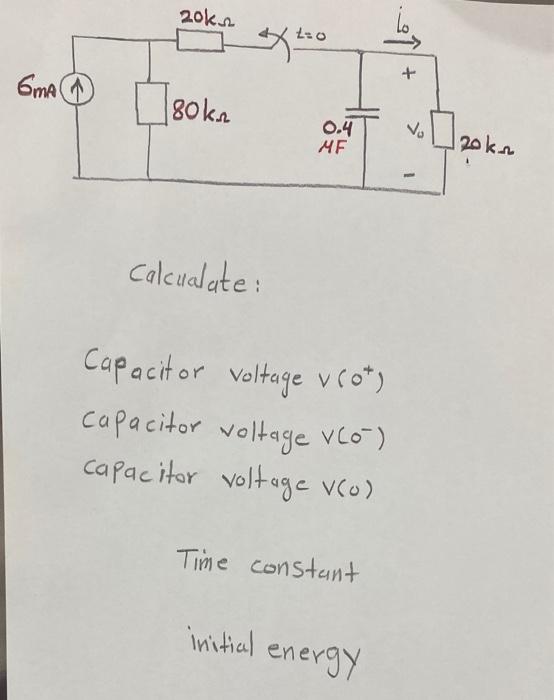 20kΩ t=0 i₀
6mA 80kΩ + 
0.4 V₀ 20kΩ
MF
-
Calcualate:
Capacitor voltage v(0⁺)
capacitor voltage v(0⁻)
capacitor voltage v(0)
Time constant
initial energy